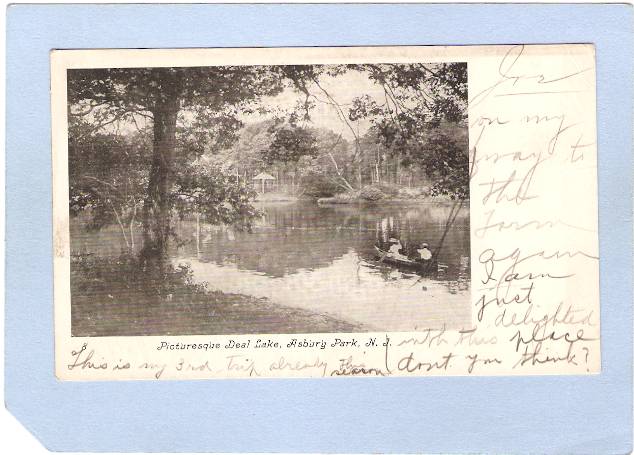 Jor
on my
way to
the
Torn
again
I am
just
delighted
with this place
dont you think?
Picturesque Deal Lake, Asbury Park, N. J.
This is my 3rd trip already this
season